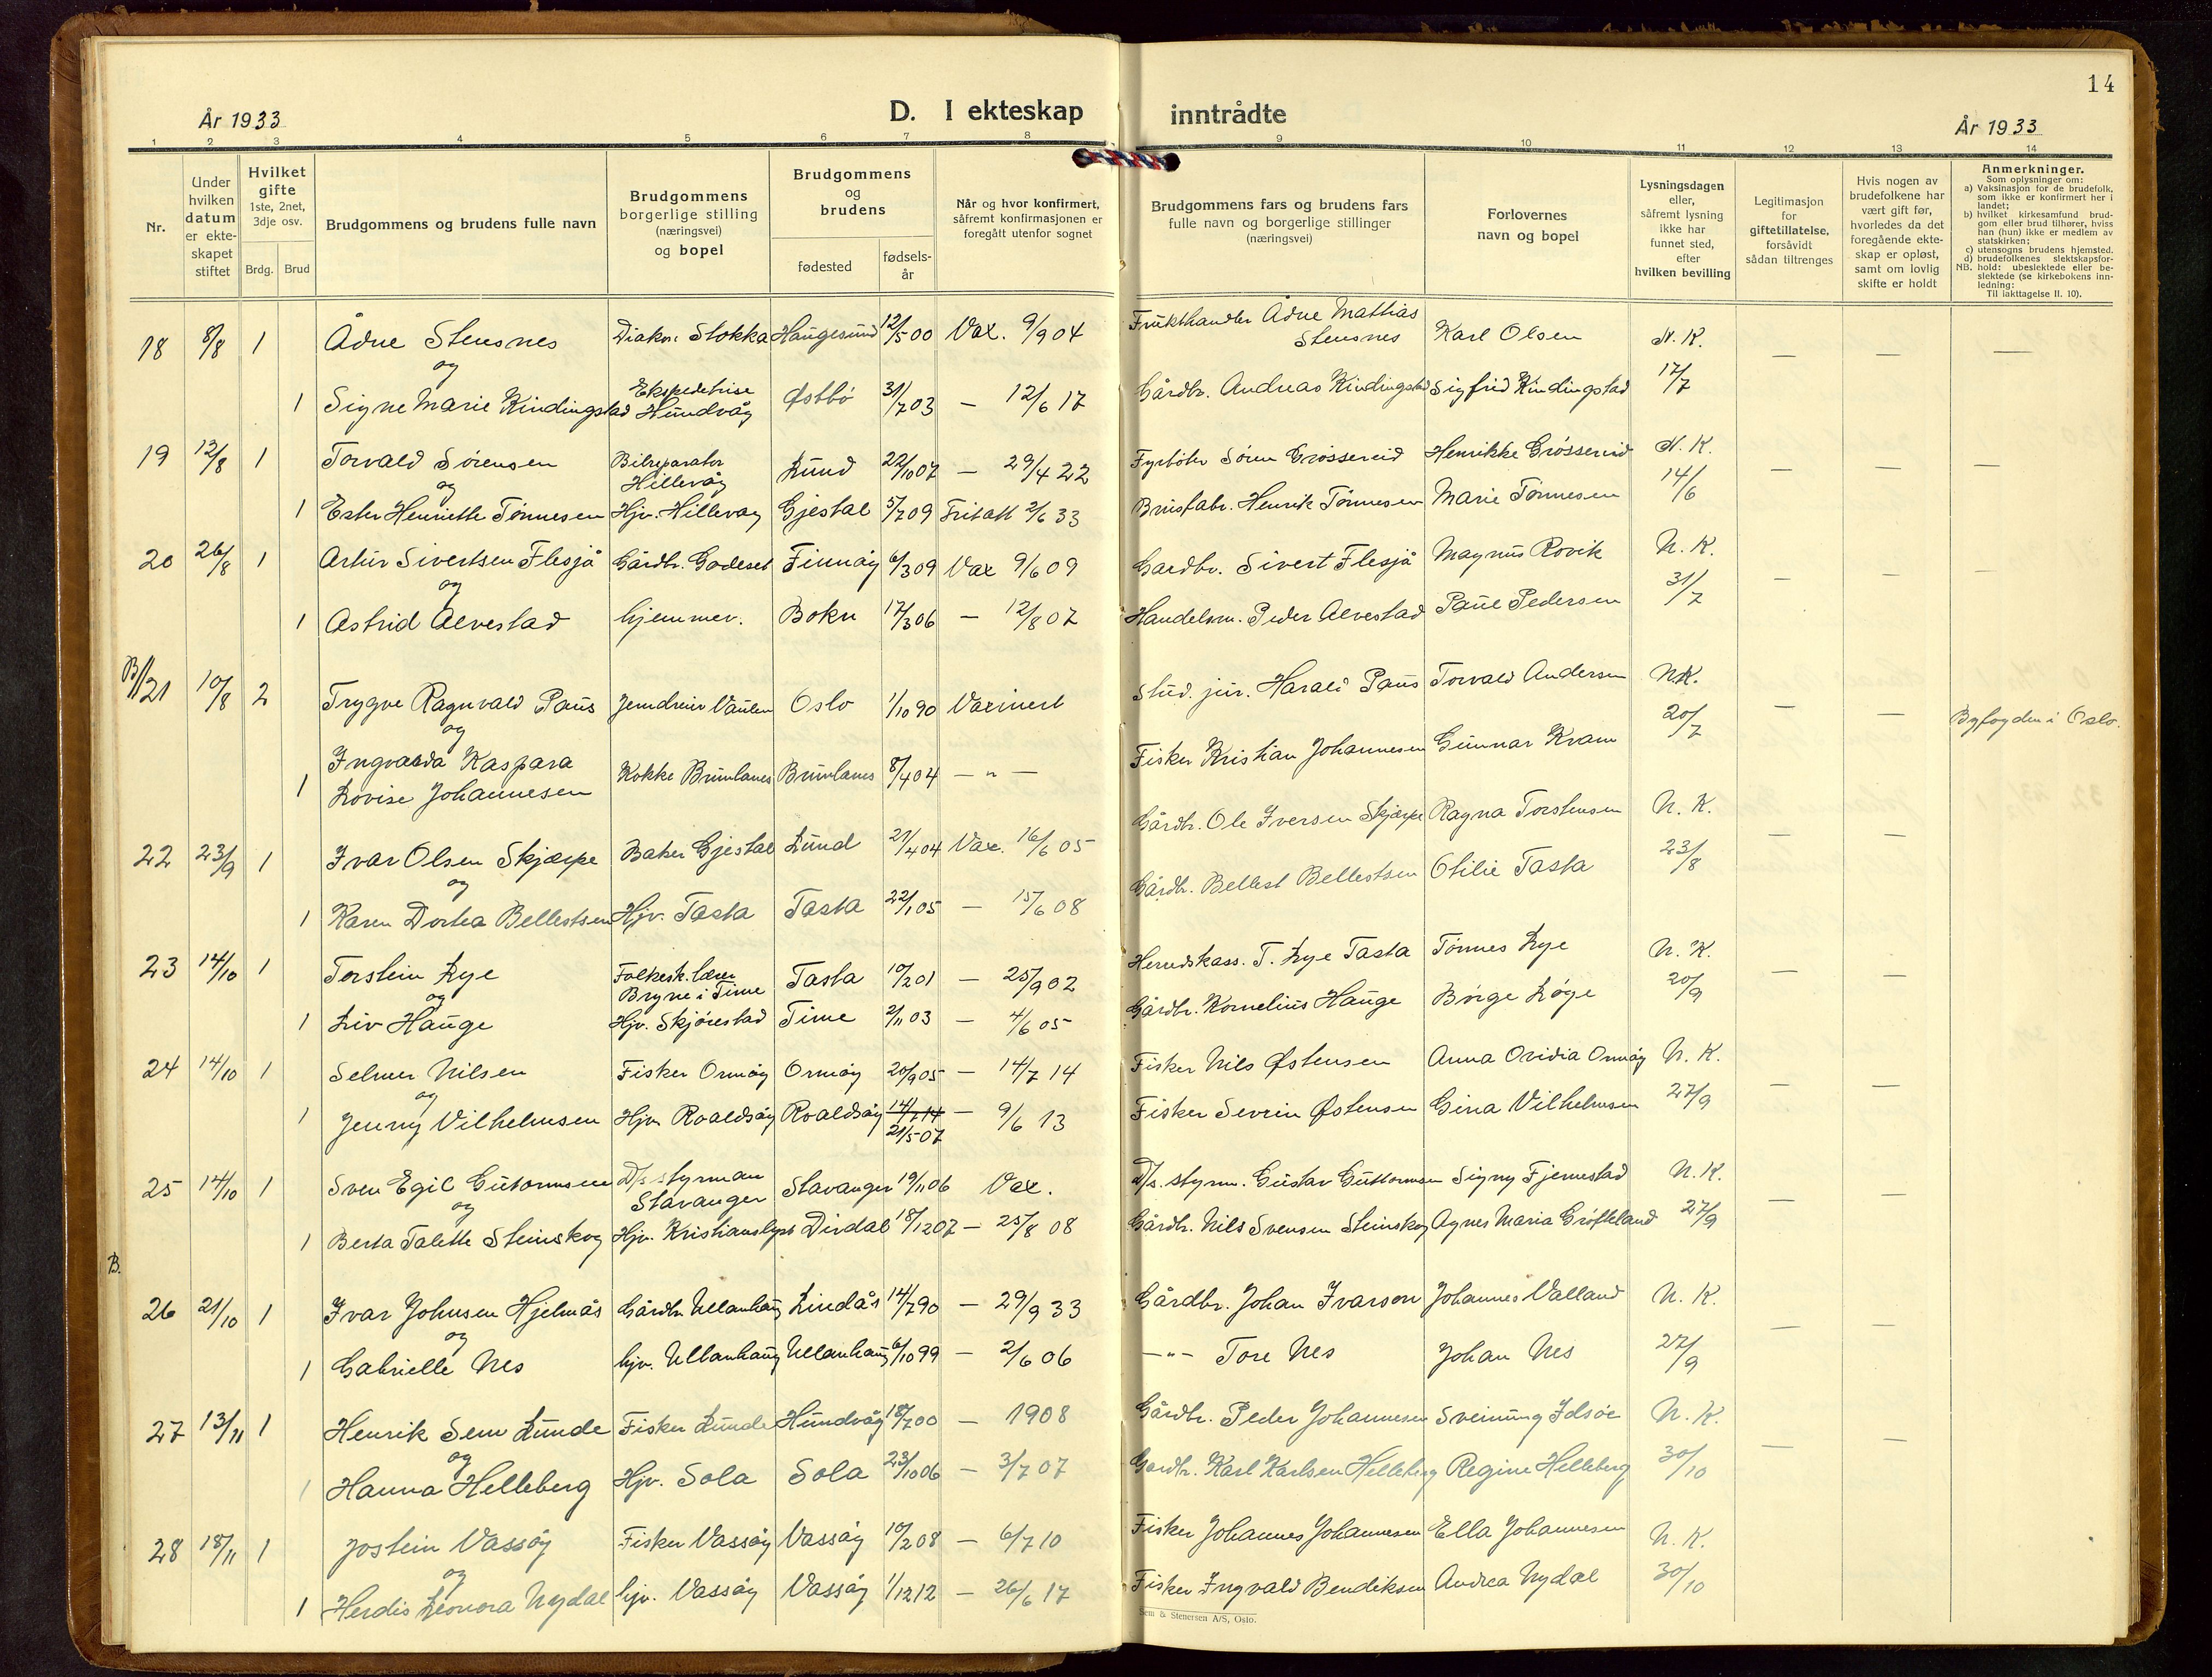 14
År 1933
D. I ekteskap inntrådte
År 1933
1 2 3 4 5 6 7 8 9 10 11 12 13 14
Nr.
Under hvilken datum er ekteskapet stiftet
Hvilket gifte 1ste, 2net, 3dje osv.
Brdg. Brud
Brudgommens og brudens fulle navn
Brudgommens borgerlige stilling (næringsvei) og bopel
Brudgommens og brudens
fødested
fødselsår
Når og hvor konfirmert, såfremt konfirmasjonen er foregått utenfor sognet
Brudgommens fars og brudens fars fulle navn og borgerlige stillinger (næringsvei)
Forlovernes navn og bopel
Lysningsdagen eller, såfremt lysning ikke har funnet sted, efter hvilken bevilling
Legitimasjon for giftetillatelse, forsåvidt sådan tiltrenges
Hvis nogen av brudefolkene har vært gift før, hvorledes da det foregående ekteskap er opløst, samt om lovlig skifte er holdt
Anmerkninger.
Som oplysninger om:
a) Vaksinasjon for de brudefolk, som ikke er konfirmert her i landet;
b) hvilket kirkesamfund brudgom eller brud tilhører, hviss han (hun) ikke er medlem av statskirken;
c) utensogns brudens hjemsted.
d) brudefolkenes slektskapsforhold: ubeslektede eller beslektede (se kirkebokens innledning:
NB. Til iakttagelse II. 10).
18 8/8 1 Ådne Stensnes Diakon Stokka Haugesund 12/5 00 Vax. 9/9 04 Frukthandler Ådne Mathias Stensnes Karl Olsen N. K. — — —
og
1 Signe Marie Kindingstad Ekspeditrise Hundvåg Østbö 31/7 03 — 12/6 17 Gårdbr. Andreas Kindingstad Sigfrid Kindingstad 17/7
19 12/8 1 Torvald Sörensen Bilreparatør Hillevåg Lund 22/10 07 — 29/4 22 Fyrböter Sören Grössereid Henrikke Grössereid N. K. — — —
og
1 Ester Henriette Tönnesen Hjv. Hillevåg Gjestal 5/7 09 Fritatt 2/6 33 Brusfabr. Henrik Tönnesen Marie Tönnesen 14/6
20 26/8 1 Artur Sivertsen Flesjå Gårdbr. Godeset Finnöy 6/3 09 Vax 9/6 09 Gardbr. Sivert Flesjå Magnus Rovik N. K. — — —
og
1 Astrid Alvestad hjemmev. Bokn 17/3 06 — 12/8 07 Handelsm. Peder Alvestad Paul Pedersen 31/7
B/11 21 10/8 2 Trygve Ragnvald Paus Jerndreier Vaulen Oslo 1/10 90 Vaxinert Stud. jur. Harald Paus Torvald Andersen N.K. — — Byfogden i Oslo.
og
1 Ingvarda Kaspara Lovise Johannesen Kokke Brunlanes Brunlanes 8/4 04 — " — Fisker Kristian Johannesen Gunnar Kvam 20/7
22 23/9 1 Ivar Olsen Skjærpe Baker Gjestal Lund 21/4 04 Vax. 16/6 05 Gårdbr. Ole Iversen Skjærpe Ragna Torstensen N. K. — —
og
1 Karen Dortea Bellestsen Hjv. Tasta Tasta 22/1 05 — 15/6 08 Gårdbr. Bellest Bellestsen Otilie Tasta 23/8
23 14/10 1 Torstein Lye Folkesk. lærer Bryne i Time Tasta 10/2 01 — 25/9 02 Herredskass. T. Lye Tasta Tönnes Lye N. K. — —
og
1 Liv Hauge Hjv. Skjörestad Time 2/11 03 — 4/6 05 Gårdbr. Kornelius Hauge Börge Löge 20/9
24 14/10 1 Selmer Nilsen Fisker Ormöy Ormöy 20/9 05 — 14/7 14 Fisker Nils Østensen Anna Ovidia Ormöy N. K. — —
og
1 Jenny Vilhelmsen Hjv. Roaldsöy Roaldsöy 14/7 14 21/5 07 — 9/6 13 Fisker Sevrin Østensen Gina Vilhelmsen 27/9
25 14/10 1 Sven Egil Gutormsen D/s styrman Stavanger Stavanger 19/11 06 Vax. D/s. styrm. Gustav Guttormsen Signy Fjermestad N. K. — —
og
1 Berta Talette Steinskog Hjv. Kristianslyst Dirdal 18/12 07 — 25/8 08 Gårdbr. Nils Svensen Steinskog Agnes Maria Gröfteland 27/9
B.
26 21/10 1 Ivar Johnsen Hjelmås Gårdbr. Ullanhaug Lindås 14/7 90 — 29/9 33 Gårdbr. Johan Ivarson Johannes Valland N. K. — —
og
1 Gabrielle Nes hjv. Ullanhaug Ullanhaug 6/10 99 — 2/6 06 —"— Tore Nes Johan Nes 27/9
27 13/11 1 Henrik Sem Lunde Fisker Lunde Hundvåg 18/7 00 — 1908 Gårdbr. Peder Johannesen Sveinung Idsöe N. K. — —
og
1 Hanna Helleberg Hjv. Sola Sola 23/10 06 — 3/7 07 Gardbr. Karl Karlsen Helleberg Regine Helleberg 30/10
28 18/11 1 Jostein Vassöy Fisker Vassöy Vassöy 10/2 08 — 6/7 10 Fisker Johannes Johannesen Ella Johannesen N. K.
og
1 Herdis Leonora Nydal hjv. Vassöy Vassöy 1/12 12 — 26/6 17 Fisker Ingvald Bendiksen Andrea Nydal 30/10
Sem & Stenersen A/S, Oslo.